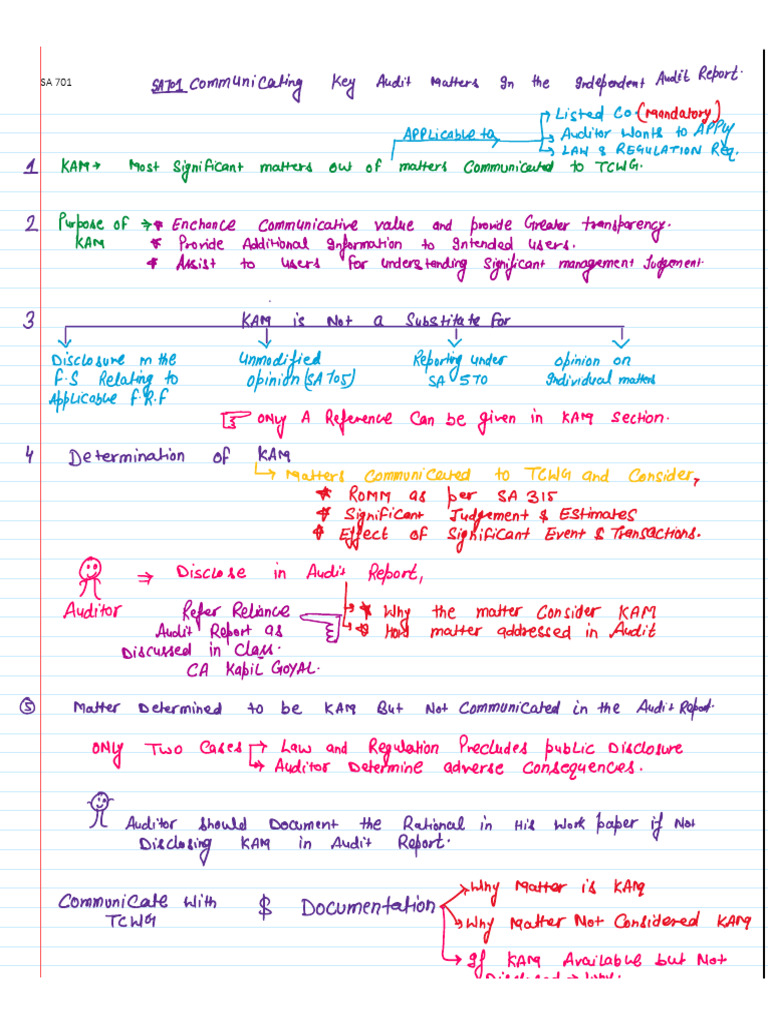 SA 701
SA701 Communicating Key Audit Matters In the Independent Audit Report.
Applicable to
Listed Co (Mandatory)
Auditor Wants to APPly
LAW & REGULATION Req.
1 KAM → Most Significant matters out of matters Communicated to TCWG.
2 Purpose of KAM
* Enchance Communicative value and provide Greater transparency.
* Provide Additional Information to Intended users.
* Assist to users for understanding Significant management Judgement.
3 KAM is Not a Substitute for
Disclosure in the F.S Relating to Applicable F.R.F
Unmodified Opinion (SA 705)
Reporting under SA 570
Opinion on Individual matters
Only A Reference Can be given in KAM Section.
4 Determination of KAM
Matters Communicated to TCWG and Consider,
* ROMM as per SA 315
* Significant Judgement & Estimates
* Effect of Significant Event & Transactions.
Auditor
⇒ Disclose in Audit Report,
* Why the matter Consider KAM
* How matter addressed in Audit
Refer Reliance
Audit Report as
Discussed in Class.
CA Kapil Goyal.
5 Matter Determined to be KAM But Not Communicated in the Audit Report.
Only Two Cases
Law and Regulation Precludes public Disclosure
Auditor Determine adverse Consequences.
Auditor should Document the Rational in His Work paper if Not
Disclosing KAM in Audit Report.
Communicate With TCWG
$ Documentation
Why Matter is KAM
Why Matter Not Considered KAM
If KAM Available but Not